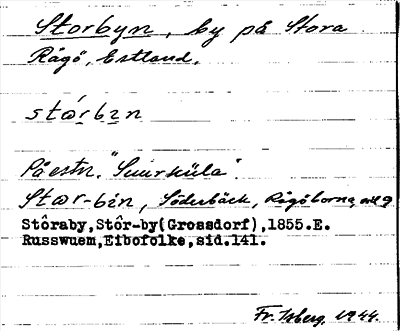 Storbyn, by på Stora
Rågö, Estland.
stórbin
På estn. "Suurküla".
Stor-bin, Söderbäck, Rågöborna, sid 9
Stôraby,Stôr-by(Grossdorf),1855.E.
Russwuem,Eibofolke,sid.141.
Fr. Isberg. 1944.